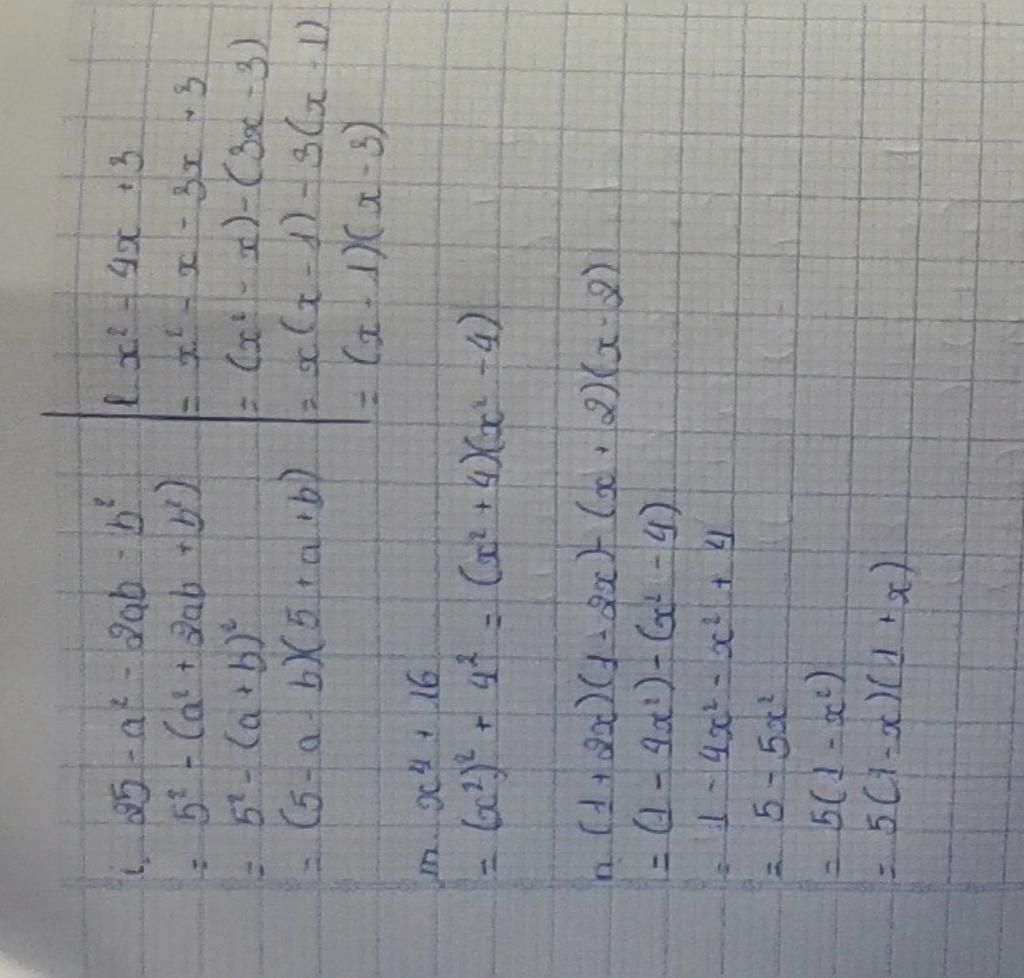 i, 25 - a² - 2ab - b²
= 5² - (a² + 2ab + b²)
= 5² - (a + b)²
= (5 - a - b)(5 + a + b)
l x² - 4x + 3
= x² - x - 3x + 3
= (x² - x) - (3x - 3)
= x(x - 1) - 3(x - 1)
= (x - 1)(x - 3)
m x⁴ + 16
= (x²)² + 4² = (x² + 4)(x² - 4)
n (1 + 2x)(1 - 2x) - (x + 2)(x - 2)
= (1 - 4x²) - (x² - 4)
= 1 - 4x² - x² + 4
= 5 - 5x²
= 5(1 - x²)
= 5(1 - x)(1 + x)